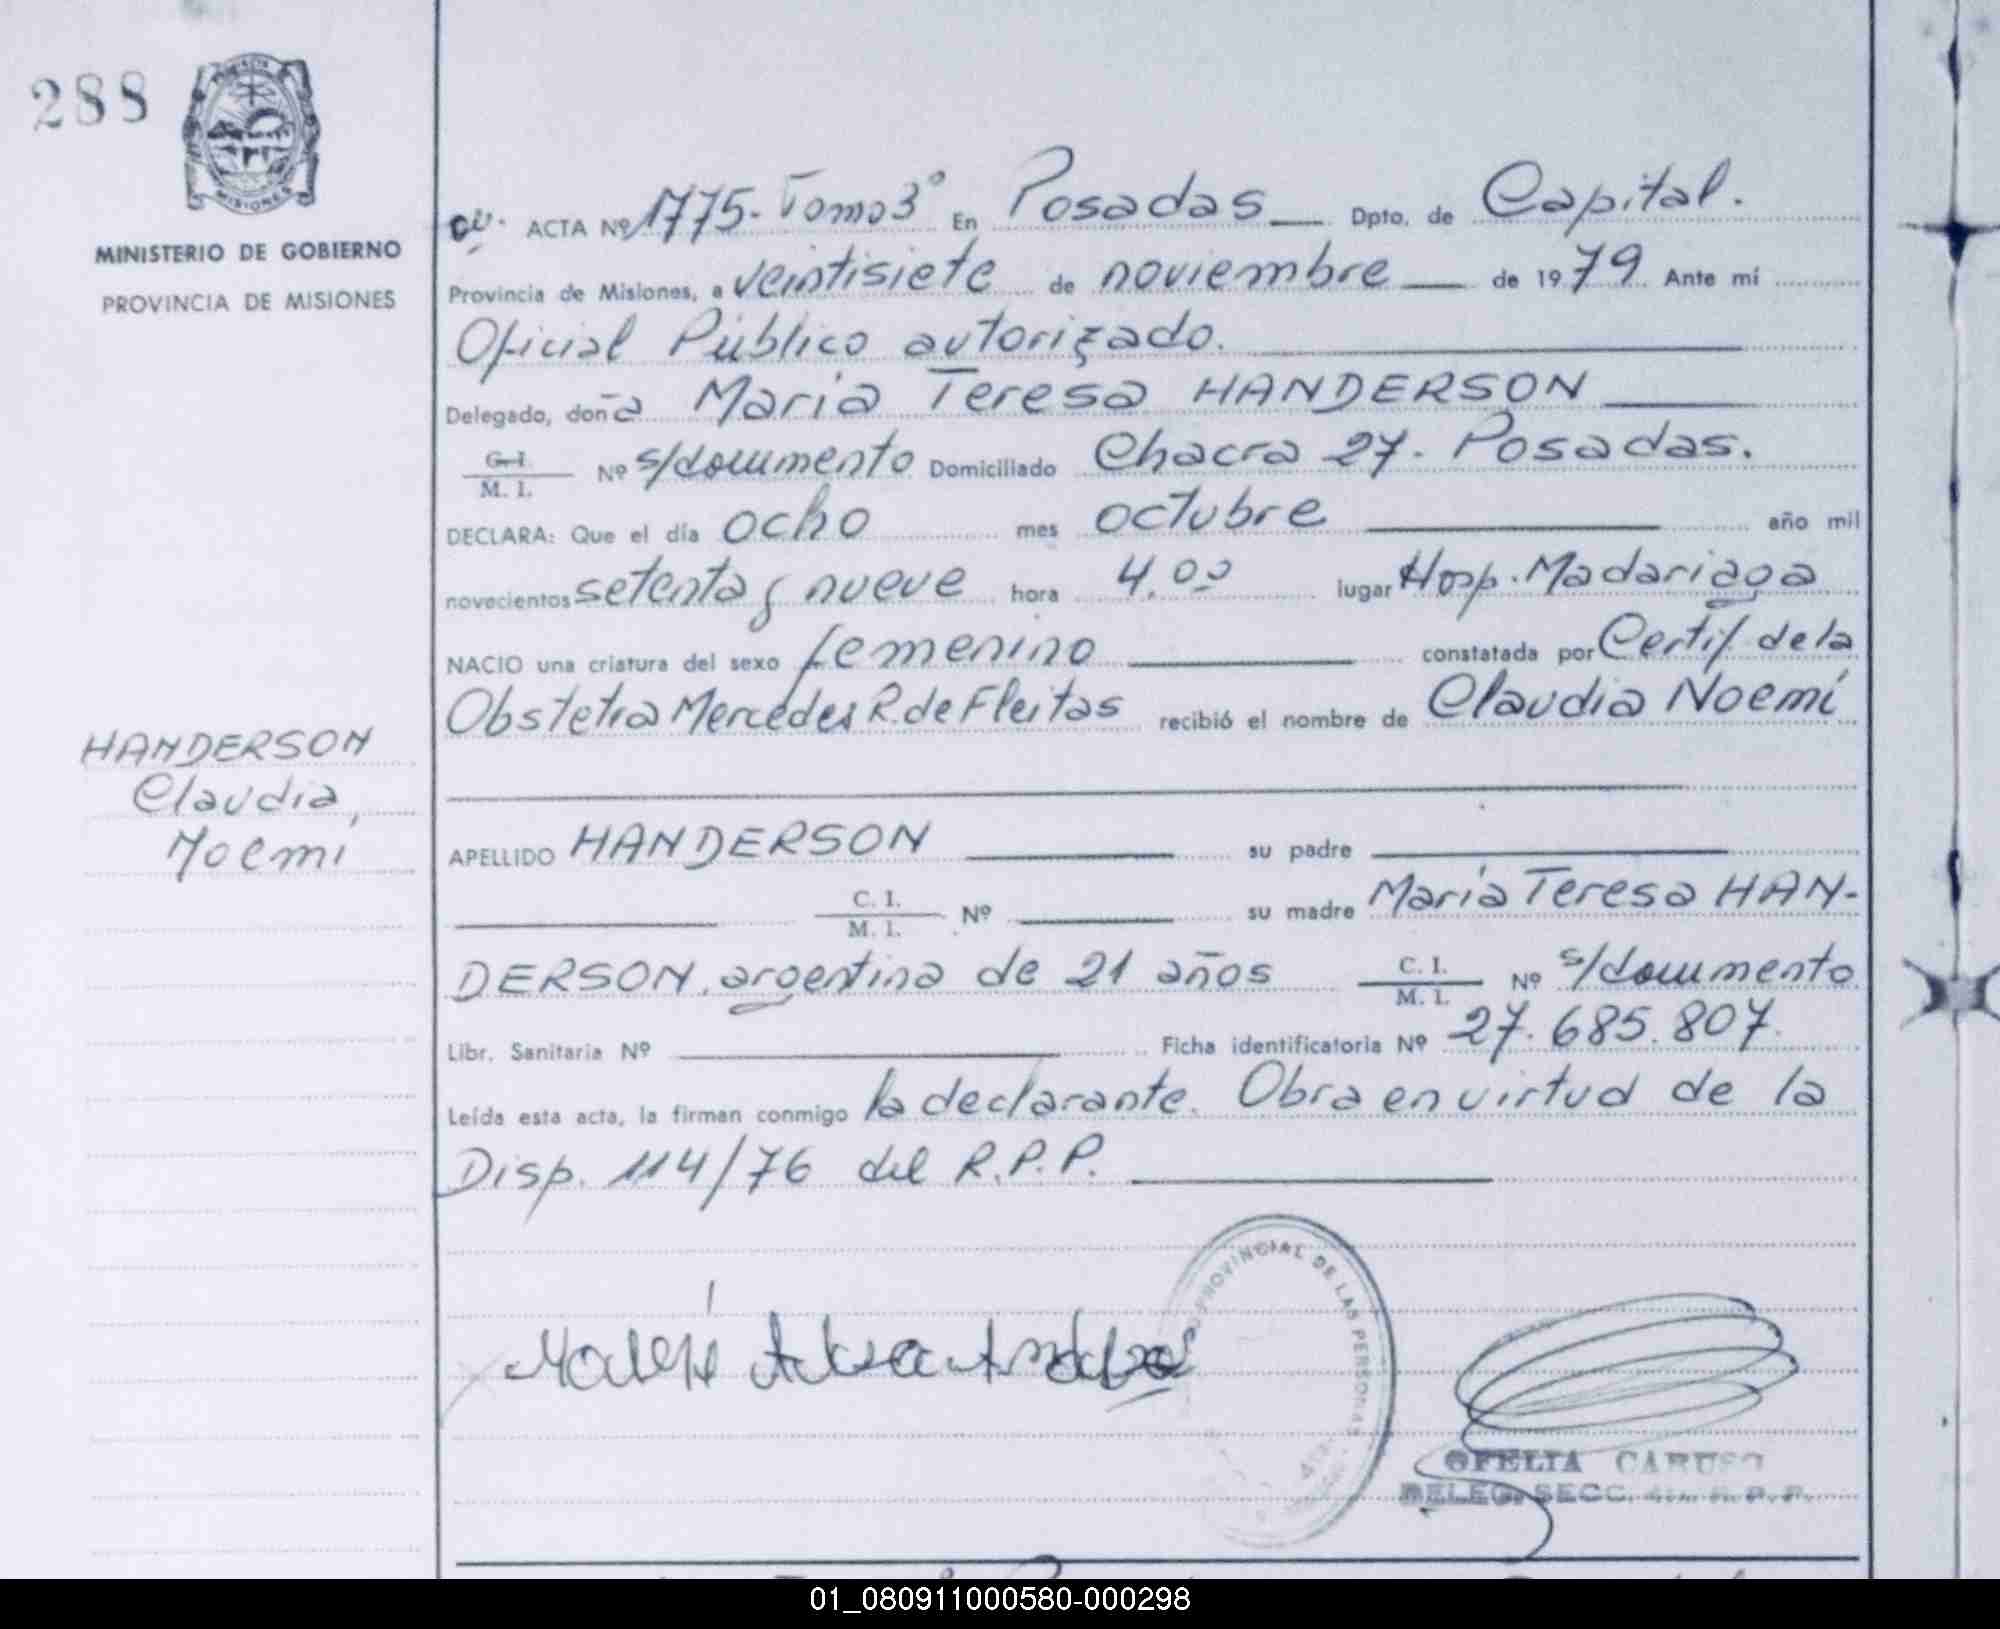 288
PROVINCIA
MISIONES
MINISTERIO DE GOBIERNO
PROVINCIA DE MISIONES
ACTA Nº 1775. Tomo 3º En Posadas Dpto. de Capital.
Provincia de Misiones, a veintisiete de noviembre de 1979 Ante mí
Oficial Público autorizado.
Delegado, doña Maria Teresa HANDERSON
C. I.
M. I. Nº s/documento Domiciliado Chacra 27. Posadas.
DECLARA: Que el día ocho mes octubre año mil
novecientos setenta y nueve hora 4,00 lugar Hosp. Madariaga
NACIO una criatura del sexo femenino constatada por Certif. de la
Obstetra Mercedes R. de Fleitas recibió el nombre de Claudia Noemí
HANDERSON
Claudia,
Noemí
APELLIDO HANDERSON su padre
C. I.
M. I. Nº su madre María Teresa HAN-
DERSON, argentina de 21 años C. I.
M. I. Nº s/documento
Libr. Sanitaria Nº Ficha identificatoria Nº 27.685.807.
Leída esta acta, la firman conmigo la declarante. Obra en virtud de la
Disp. 114/76 del R.P.P.
PROVINCIAL DE LAS PERSONAS
OFELIA CARUSO
DELEG. SECC.
01_080911000580-000298